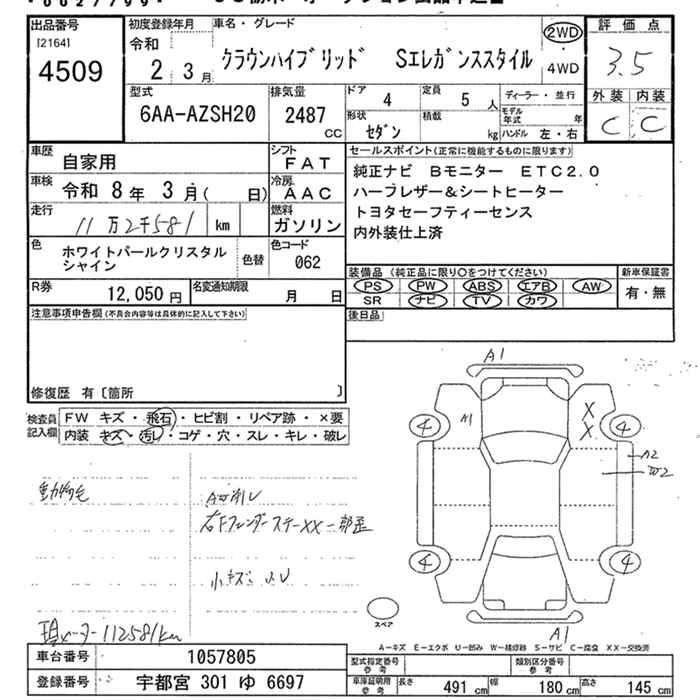 出品番号
[2164]
4509
初度登録年月
令和
2 3月
車名・グレード
クラウンハイブリッド Sエレガンススタイル
2WD
・
4WD
評価点
3.5
外装 内装
C C
型式
6AA-AZSH20
排気量
2487
CC
ドア
4
定員
5 人
形状
セダン
積載
kg
ディーラー・並行
モデル年式 年
ハンドル 左・右
車歴
自家用
シフト
FAT
車検
令和 8年 3月( 日)
冷房
AAC
走行
11万2千581 km
燃料
ガソリン
色
ホワイトパールクリスタル
シャイン
色替
色コード
062
R券
12,050円
名変通知期限
月 日
セールスポイント(正常に機能するものに限ります)
純正ナビ Bモニター ETC2.0
ハーフレザー&シートヒーター
トヨタセーフティーセンス
内外装仕上済
装備品 (純正品に限り○をつけてください)
PS PW ABS エアB AW
SR ナビ TV カワ
新車保証書
有・無
後日品
注意事項申告欄(不具合内容等は具体的に記入して下さい)
修復歴 有〔箇所 〕
検査員
記入欄
FW キズ・飛石・ヒビ割・リペア跡・×要
内装 キズ・汚レ・コゲ・穴・スレ・キレ・破レ
動物毛
右Fフェンダーステー××一部歪
小キズ
現メーター112581km
A1
A1
X
X
4
4
A2
W2
4
4
スペア
A1
A-キズ E-エクボ U-凹み W-補修跡 S-サビ C-腐食 XX-交換済
車台番号
1057805
登録番号
宇都宮 301 ゆ 6697
型式指定番号
参考
類別区分番号
参考
車庫証明用
参考
長さ
491 cm
幅
180 cm
高さ
145 cm